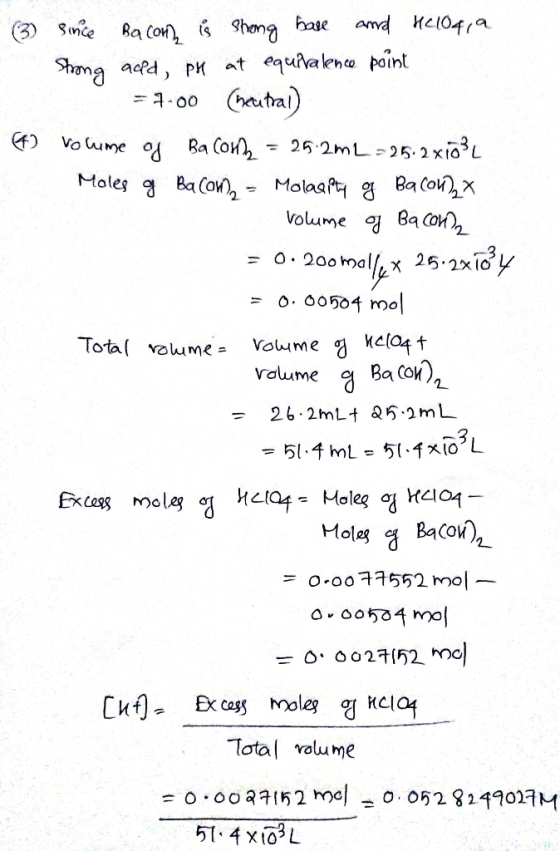 (3) Since Ba(OH)₂ is strong base and HClO4, a
strong acid, pH at equivalence point
= 7.00 (neutral)
(4) Volume of Ba(OH)₂ = 25.2mL = 25.2×10⁻³L
Moles of Ba(OH)₂ = Molarity of Ba(OH)₂ ×
Volume of Ba(OH)₂
= 0.200mol/L × 25.2×10⁻³ L
= 0.00504 mol
Total volume = volume of HClO4 +
volume of Ba(OH)₂
= 26.2mL + 25.2mL
= 51.4 mL = 51.4×10⁻³L
Excess moles of HClO4 = Moles of HClO4 –
Moles of Ba(OH)₂
= 0.0077552 mol –
0.00504 mol
= 0.0027152 mol
[H+] = Excess moles of HClO4
Total volume
= 0.0027152 mol = 0.0528249027M
51.4×10⁻³L